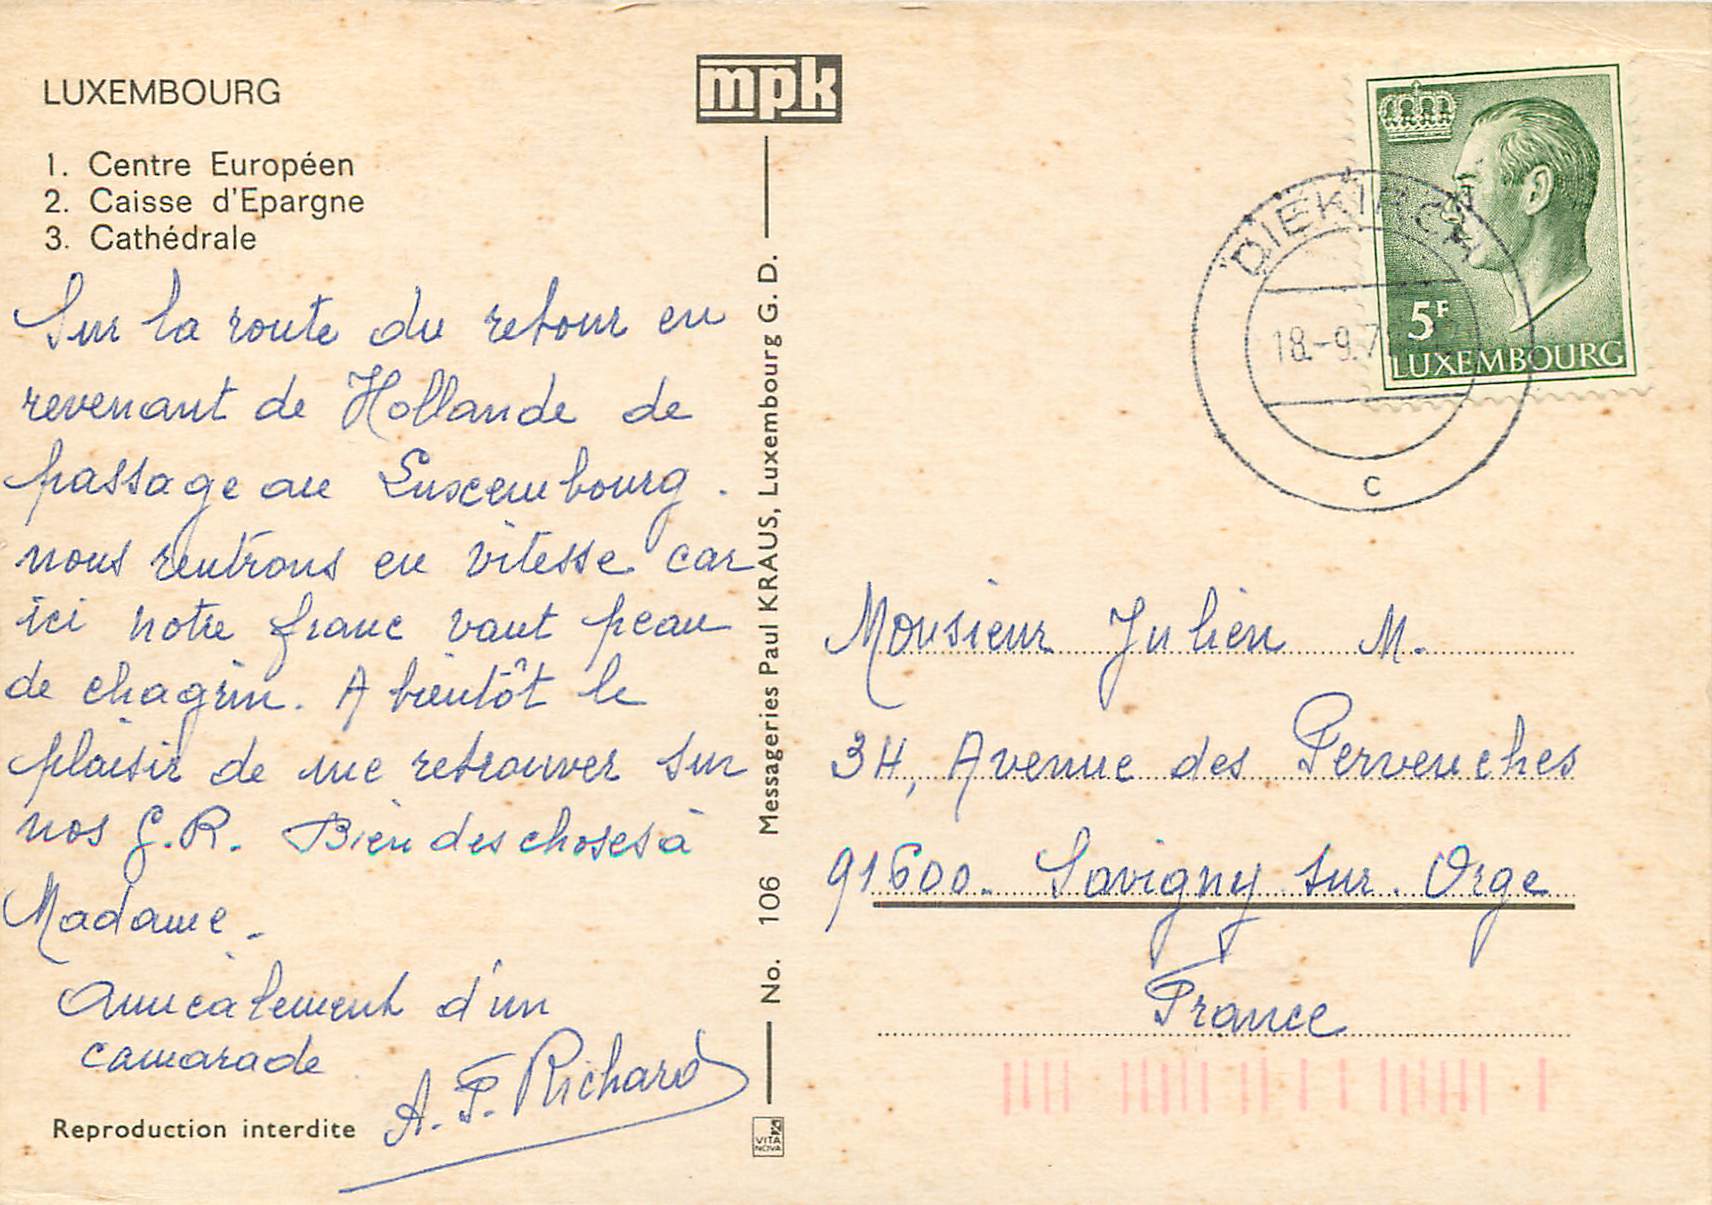 LUXEMBOURG
1. Centre Européen
2. Caisse d'Epargne
3. Cathédrale
Sur la route du retour en
revenant de Hollande de
passage au Luxembourg.
nous rentrons en vitesse car
ici notre franc vaut peau
de chagrin. A bientôt le
plaisir de me retrouver sur
nos G.R. Bien des choses à
Madame.
Amicalement d'un
camarade
A. P. Richard
Reproduction interdite
mpk
No. 106 Messageries Paul KRAUS, Luxembourg G. D.
VITA NOVA
5F
LUXEMBOURG
DIEKIRCH
18.-9.7
C
Monsieur Julien M.
34, Avenue des Pervenches
91600. Savigny sur Orge
France